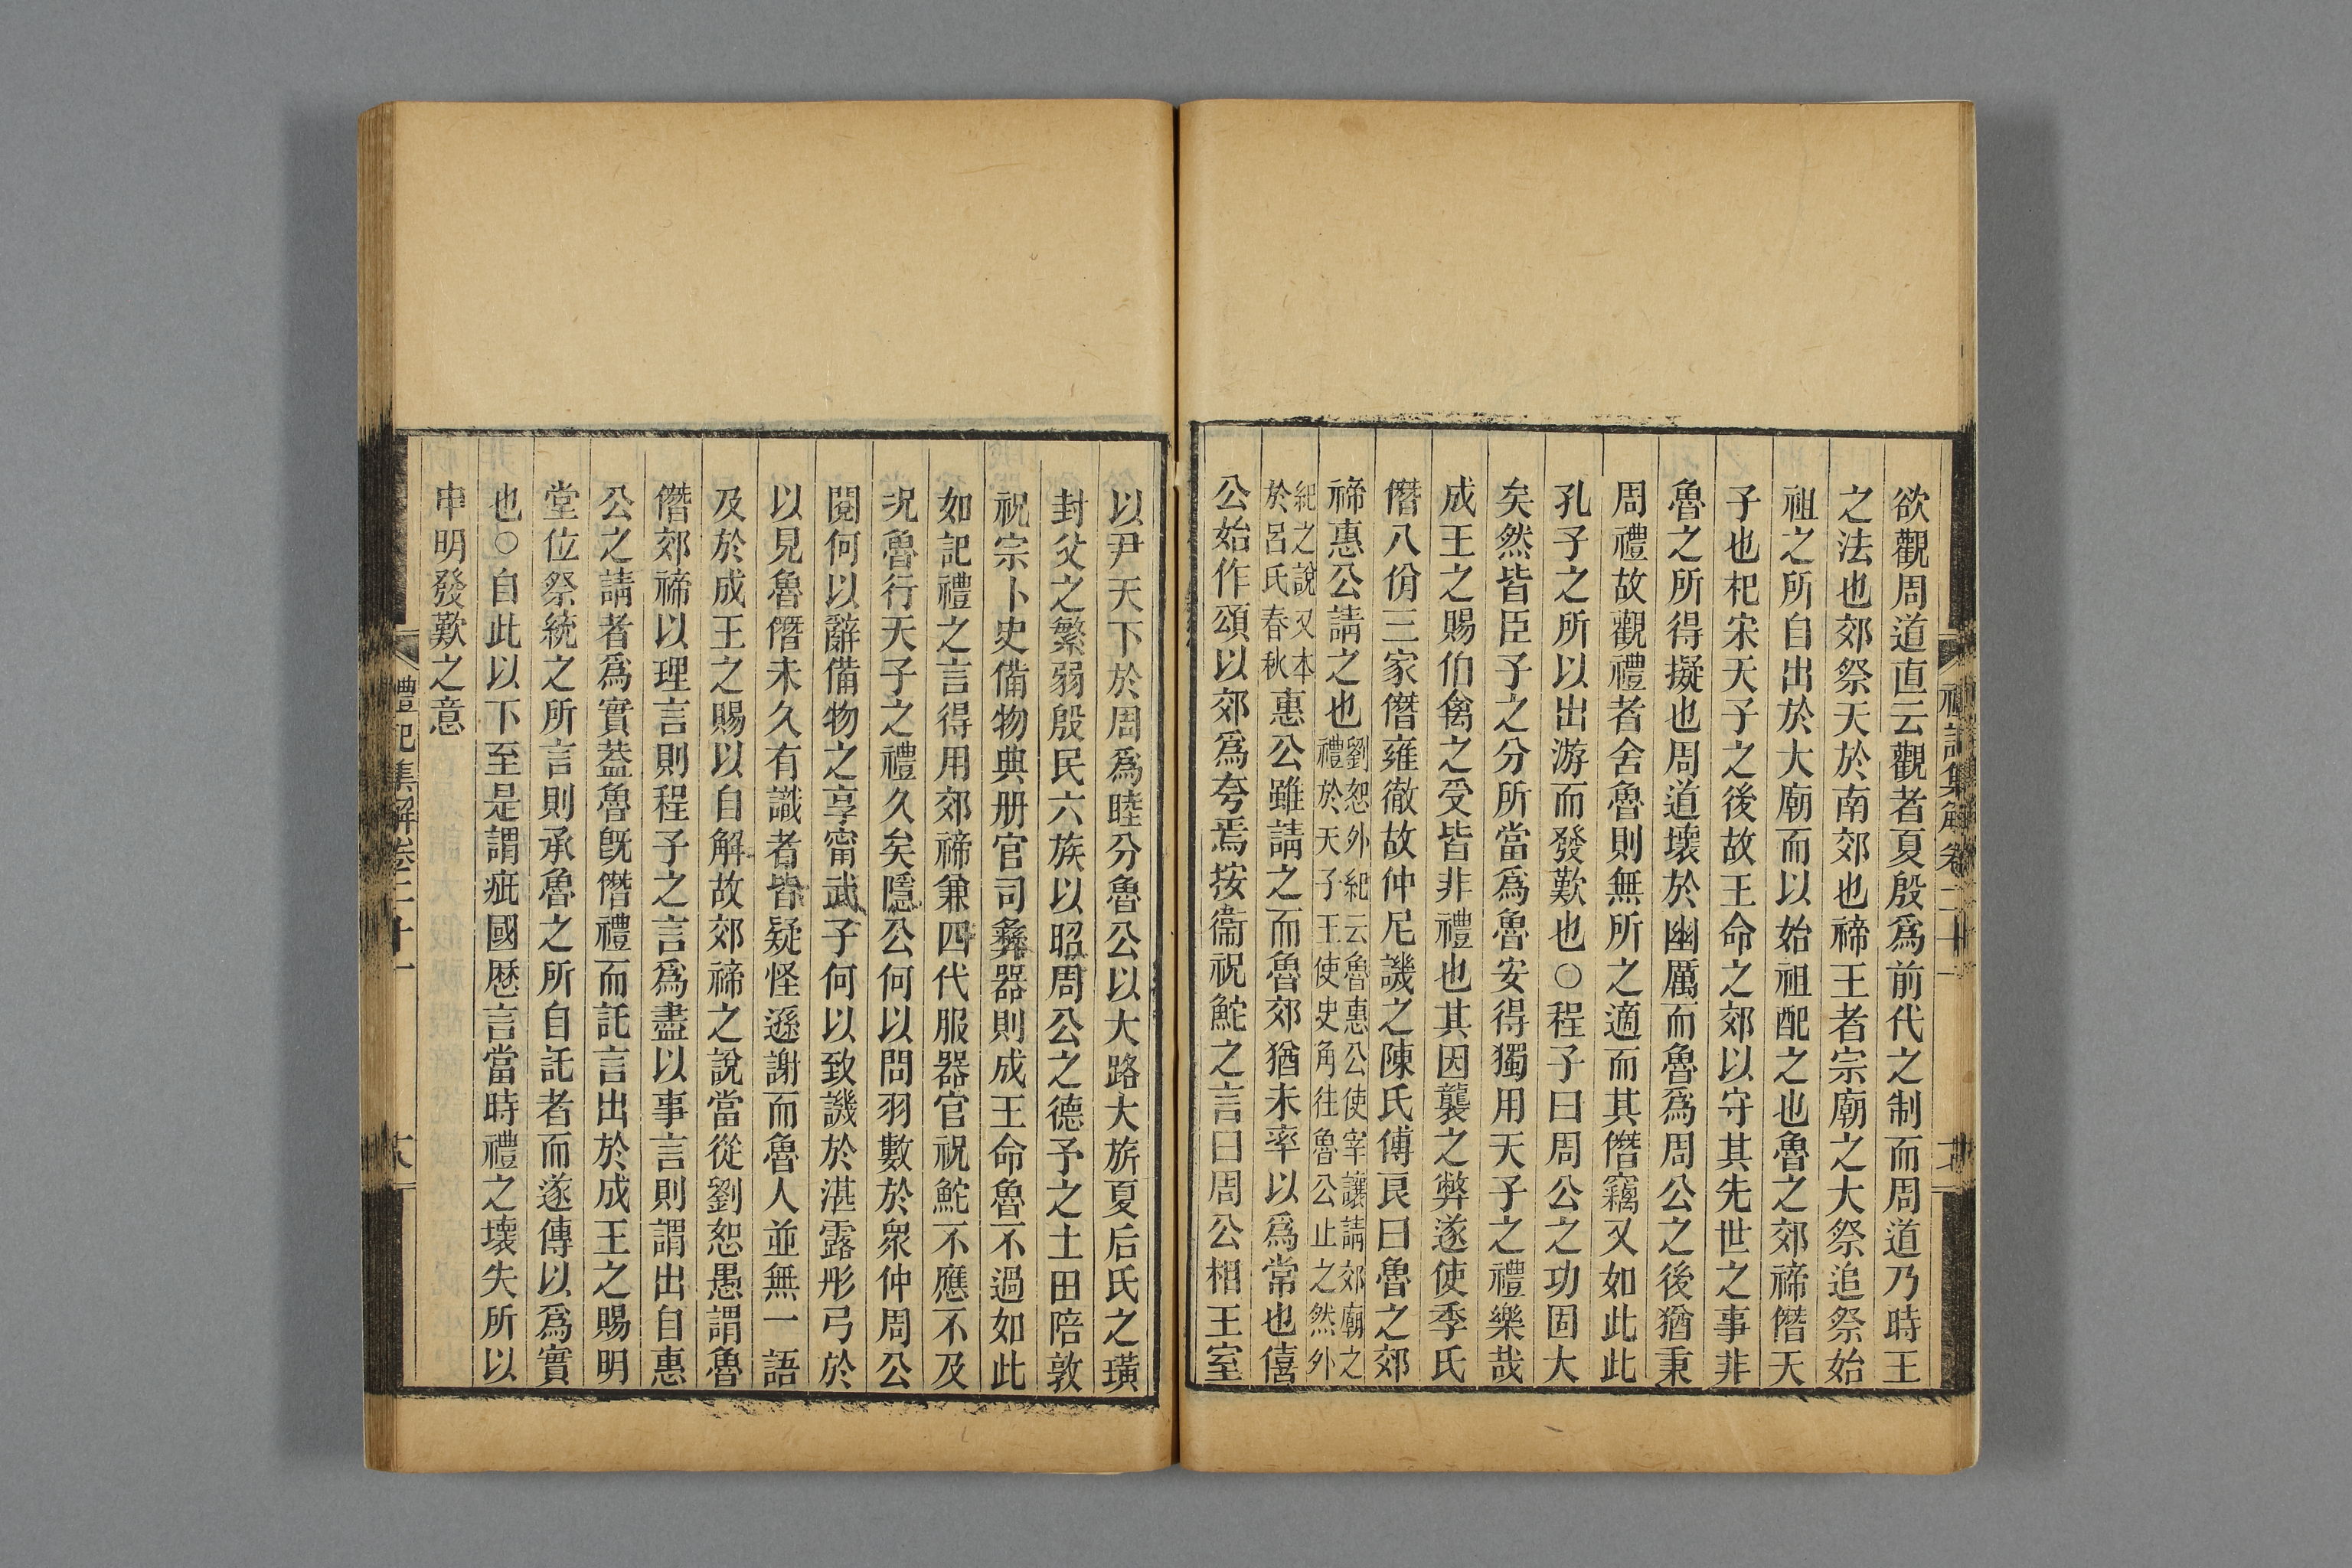 欲觀周道直云觀者夏殷爲前代之制而周道乃時王
之法也郊祭天於南郊也禘王者宗廟之大祭追祭始
祖之所自出於大廟而以始祖配之也魯之郊禘僭天
子也杞宋天子之後故王命之郊以守其先世之事非
魯之所得擬也周道壞於幽厲而魯爲周公之後猶秉
周禮故觀禮者舍魯則無所之適而其僭竊又如此此
孔子之所以出游而發歎也○程子曰周公之功固大
矣然皆臣子之分所當爲魯安得獨用天子之禮樂哉
成王之賜伯禽之受皆非禮也其因襲之弊遂使季氏
僭八佾三家僭雍徹故仲尼譏之陳氏傅良曰魯之郊
禘惠公請之也劉恕外紀云魯惠公使宰讓請郊廟之
禮於天子王使史角往魯公止之然外
紀之說又本
於呂氏春秋惠公雖請之而魯郊猶未率以爲常也僖
公始作頌以郊爲夸焉按衞祝鮀之言曰周公相王室
以尹天下於周爲睦分魯公以大路大旂夏后氏之璜
封父之繁弱殷民六族以昭周公之德予之土田陪敦
祝宗卜史備物典册官司彝器則成王命魯不過如此
如記禮之言得用郊禘兼四代服器官祝鮀不應不及
況魯行天子之禮久矣隱公何以問羽數於衆仲周公
閱何以辭備物之享甯武子何以致譏於湛露彤弓於
以見魯僭未久有識者皆疑怪遜謝而魯人並無一語
及於成王之賜以自解故郊禘之說當從劉恕愚謂魯
僭郊禘以理言則程子之言爲盡以事言則謂出自惠
公之請者爲實蓋魯旣僭禮而託言出於成王之賜明
堂位祭統之所言則承魯之所自託者而遂傳以爲實
也○自此以下至是謂疵國歷言當時禮之壞失所以
申明發歎之意
禮記集解卷二十一